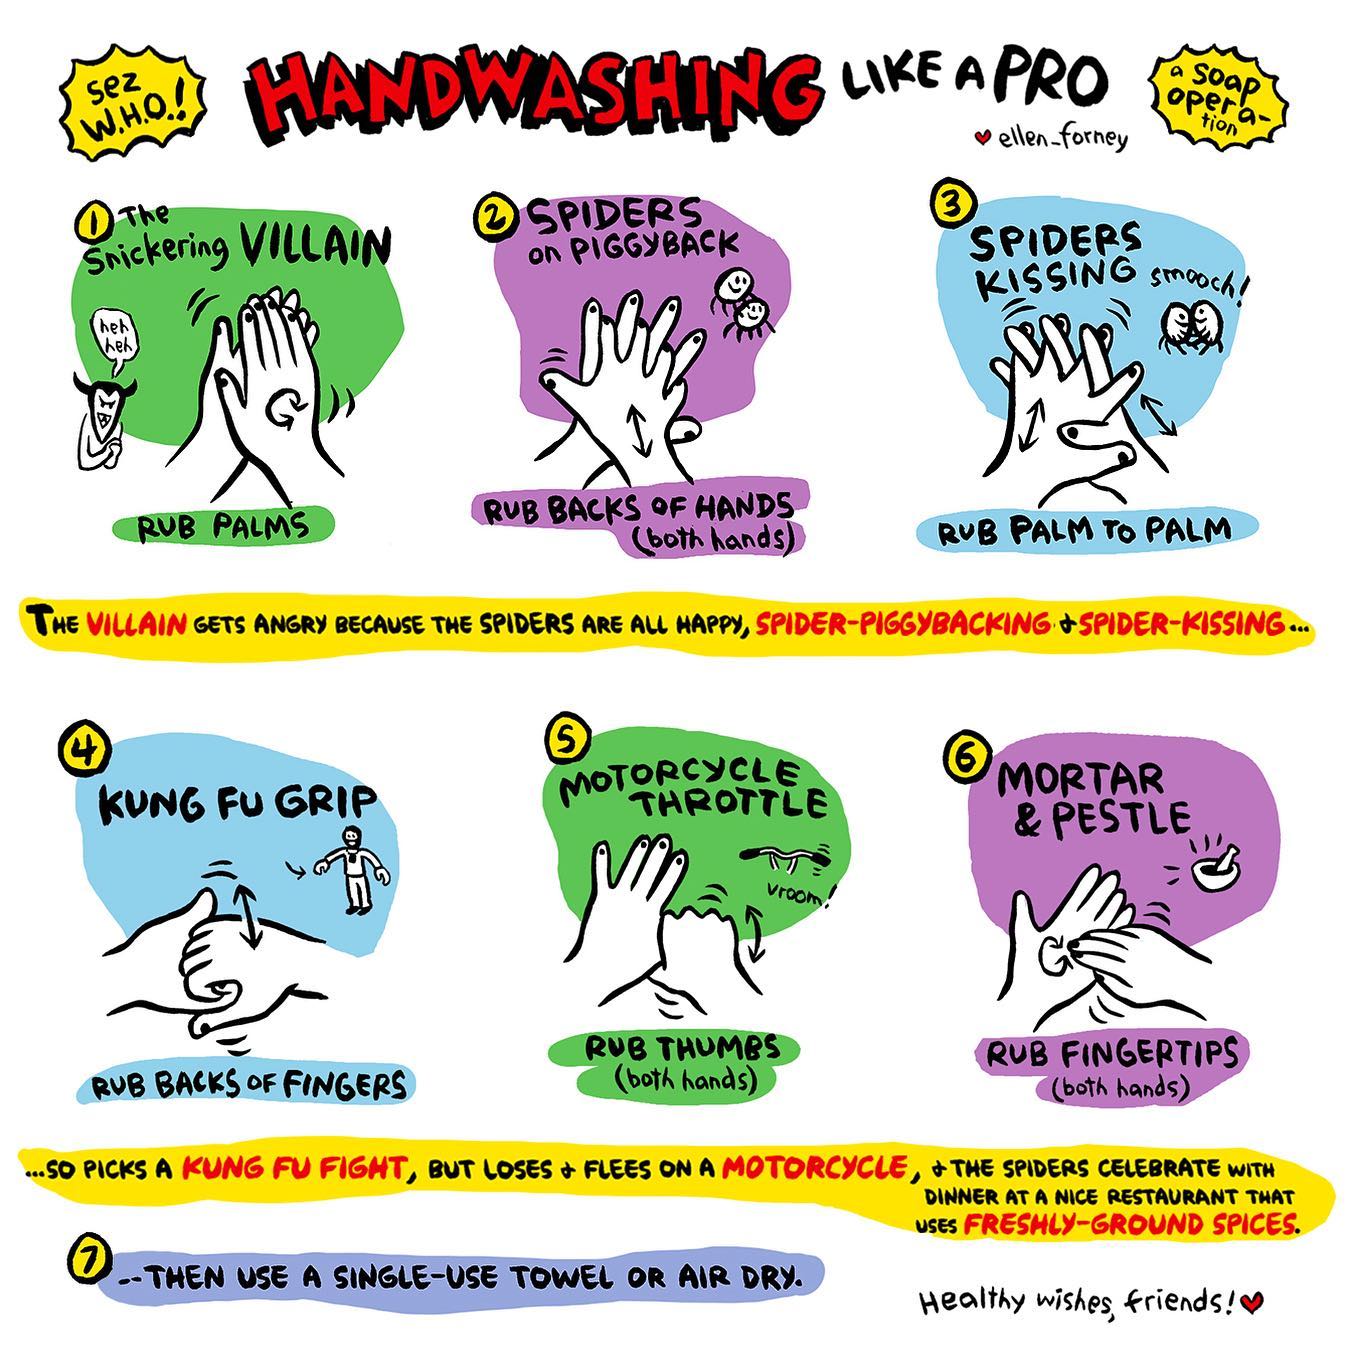 sez
W.H.O.!
HANDWASHING LIKE A PRO
♥ ellen_forney
a SOAP
opera-
tion
1 The
Snickering VILLAIN
heh
heh
RUB PALMS
2 SPIDERS
on PIGGYBACK
RUB BACKS OF HANDS
(both hands)
3 SPIDERS
KISSING
smooch!
RUB PALM TO PALM
THE VILLAIN GETS ANGRY BECAUSE THE SPIDERS ARE ALL HAPPY, SPIDER-PIGGYBACKING & SPIDER-KISSING...
4 KUNG FU GRIP
RUB BACKS OF FINGERS
5 MOTORCYCLE
THROTTLE
vroom!
RUB THUMBS
(both hands)
6 MORTAR
& PESTLE
RUB FINGERTIPS
(both hands)
...SO PICKS A KUNG FU FIGHT, BUT LOSES & FLEES ON A MOTORCYCLE, & THE SPIDERS CELEBRATE WITH
DINNER AT A NICE RESTAURANT THAT
USES FRESHLY-GROUND SPICES.
7 --THEN USE A SINGLE-USE TOWEL OR AIR DRY.
Healthy wishes, friends! ♥